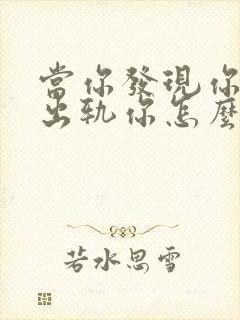 當你發現你
出軌你怎麼
若水思雪